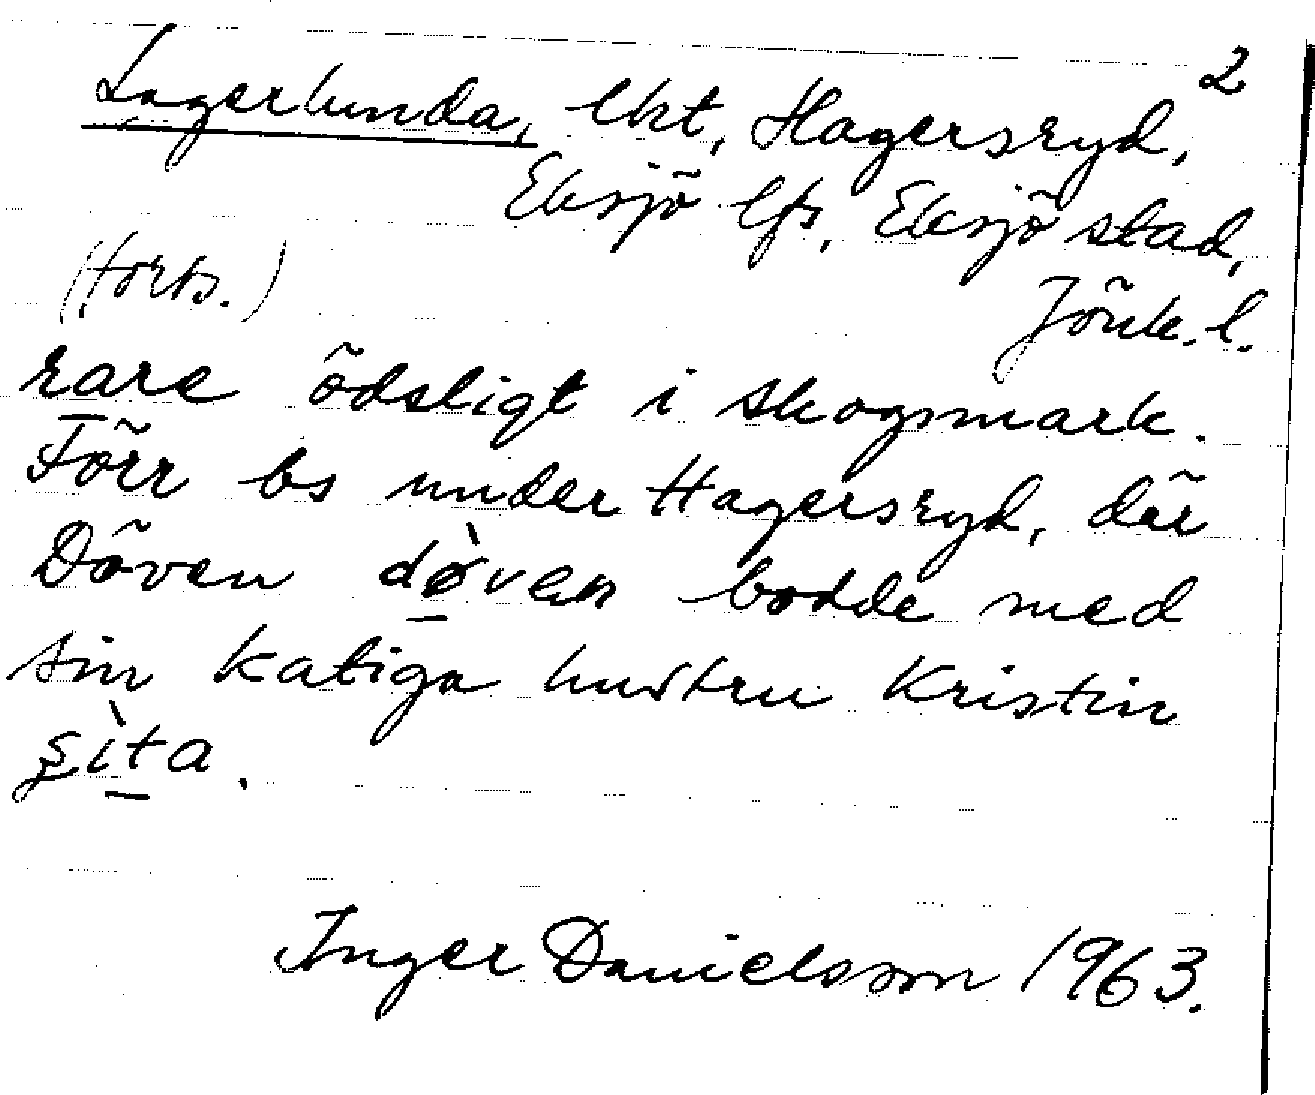 2
Lagerlunda, lht, Hagersryd,
Eksjö lfs, Eksjö stad,
(forts.) Jönk. l.
rare ödsligt i skogsmark.
Förr bs under Hagersryd, där
Döven dø̀ven bodde med
sin katiga hustru Kristin
sìta.
Inger Danielsson 1963.